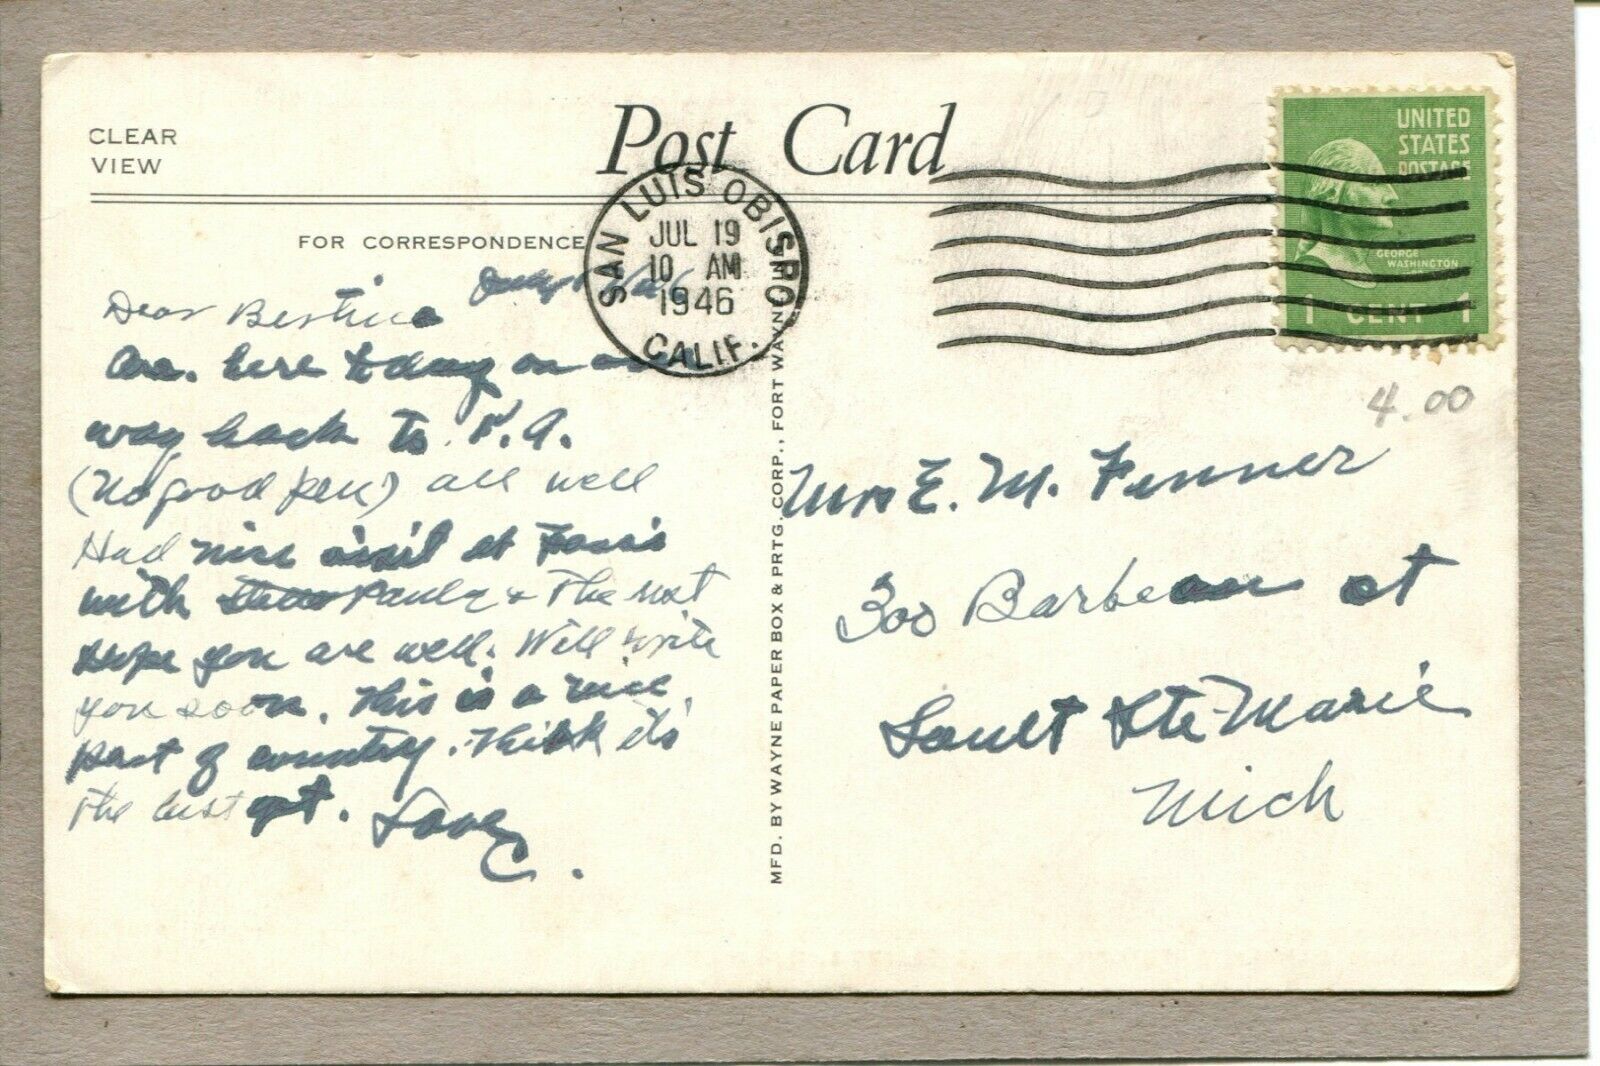 CLEAR
VIEW
Post Card
FOR CORRESPONDENCE
SAN LUIS OBISPO
JUL 19
10 AM
1946
CALIF.
UNITED
STATES
POSTAGE
GEORGE
WASHINGTON
1 CENT 1
4.00
July
Dear Bertina
Are. here today on
way back to L.A.
(No good pen) all well
Had nice visit at
with Paula + the rest
Hope you are well. Will write
you soon. This is a nice
part of country. Think it's
the best yet. Love
C.
MFD. BY WAYNE PAPER BOX & PRTG. CORP., FORT WAYNE, IND.
Mrs E. M. Fenner
300 Barbeau st
Sault Ste Marie
Mich